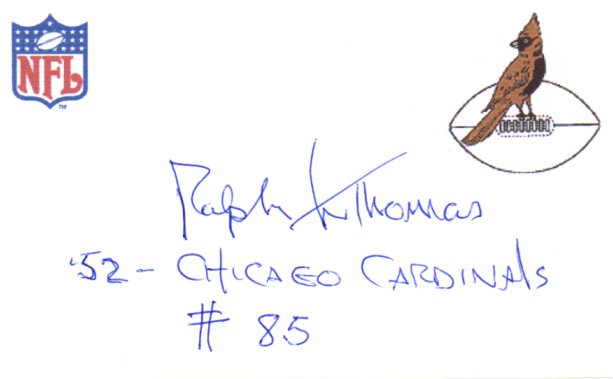 NFL
TM
Ralph Thomas
'52 - CHICAGO CARDINALS
# 85